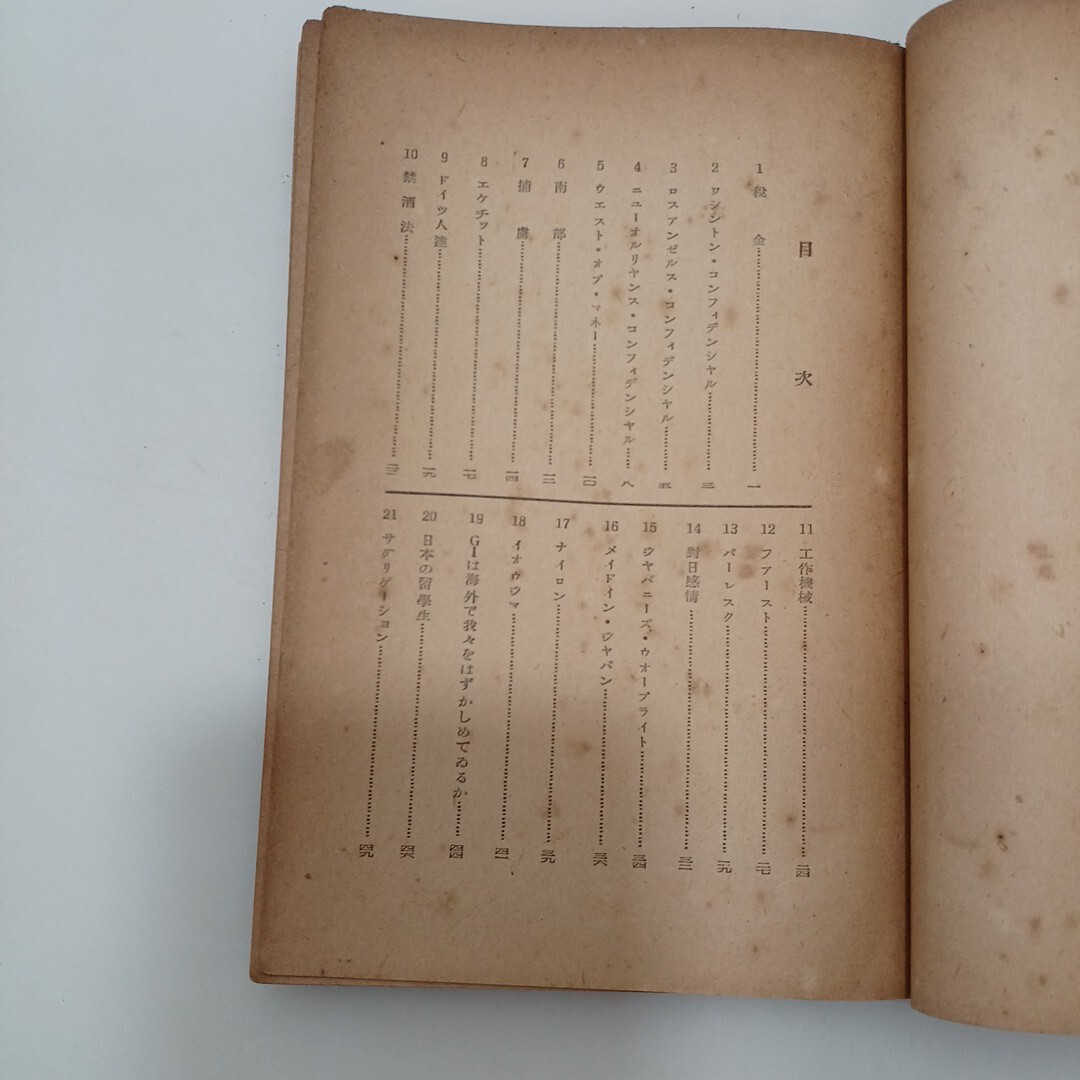 目次
1 税金……一
2 ワシントン・コンフィデンシャル……三
3 ロスアンゼルス・コンフィデンシャル……五
4 ニューオルリヤンス・コンフィデンシャル……八
5 ウエスト・オブ・マネー……一〇
6 南部……一二
7 捕虜……一四
8 エケチット……一七
9 ドイツ人達……一九
10 禁酒法……二二
11 工作機械……二四
12 ファースト……二七
13 バーレスク……二九
14 對日感情……三二
15 ジヤパニーズ・ウオーブライト……三四
16 メイドイン・ジヤパン……三六
17 ナイロン……三九
18 イオウジマ……四一
19 GIは海外で我々をはずかしめてゐるか……四四
20 日本の留學生……四六
21 サグリゲーション……四九